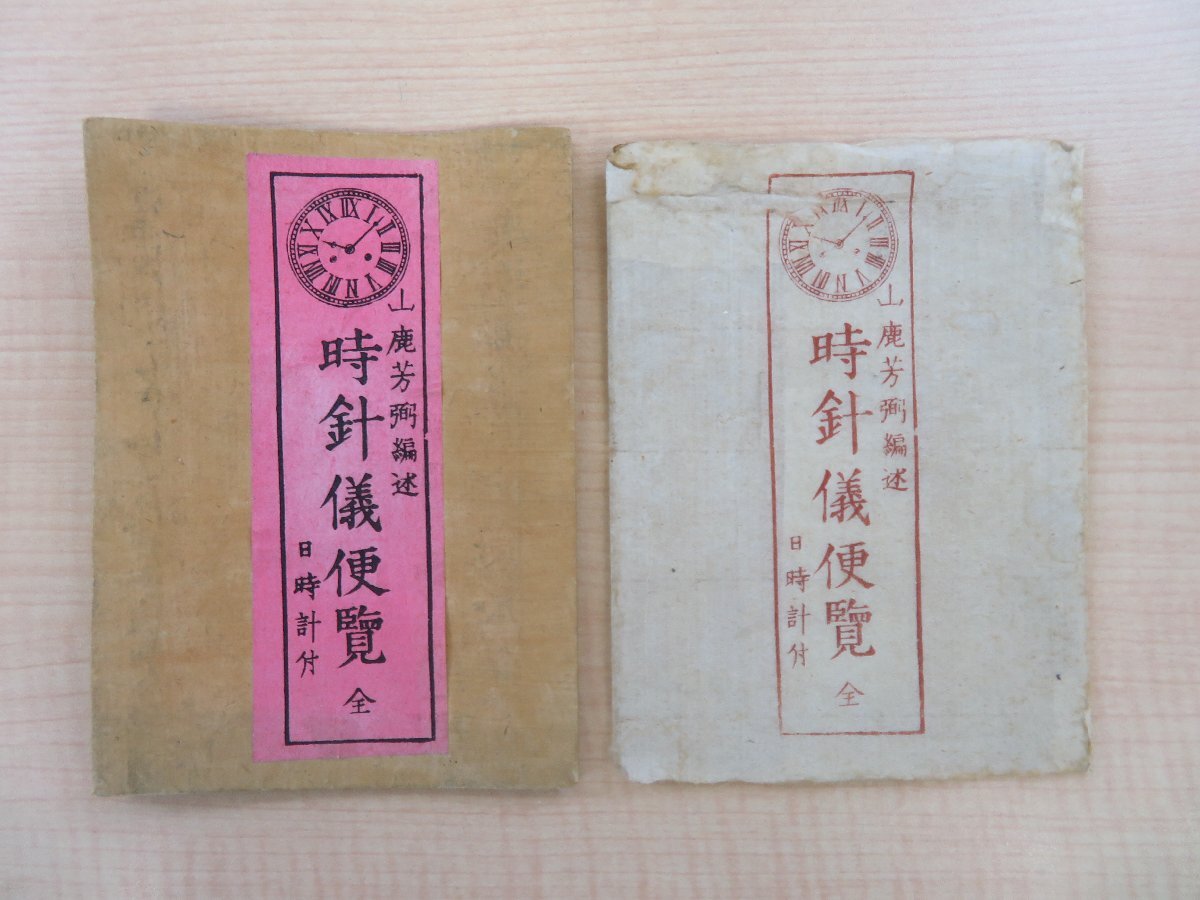 山鹿芳弼編述
時針儀便覧 全
日時計付
山鹿芳弼編述
時針儀便覧 全
日時計付